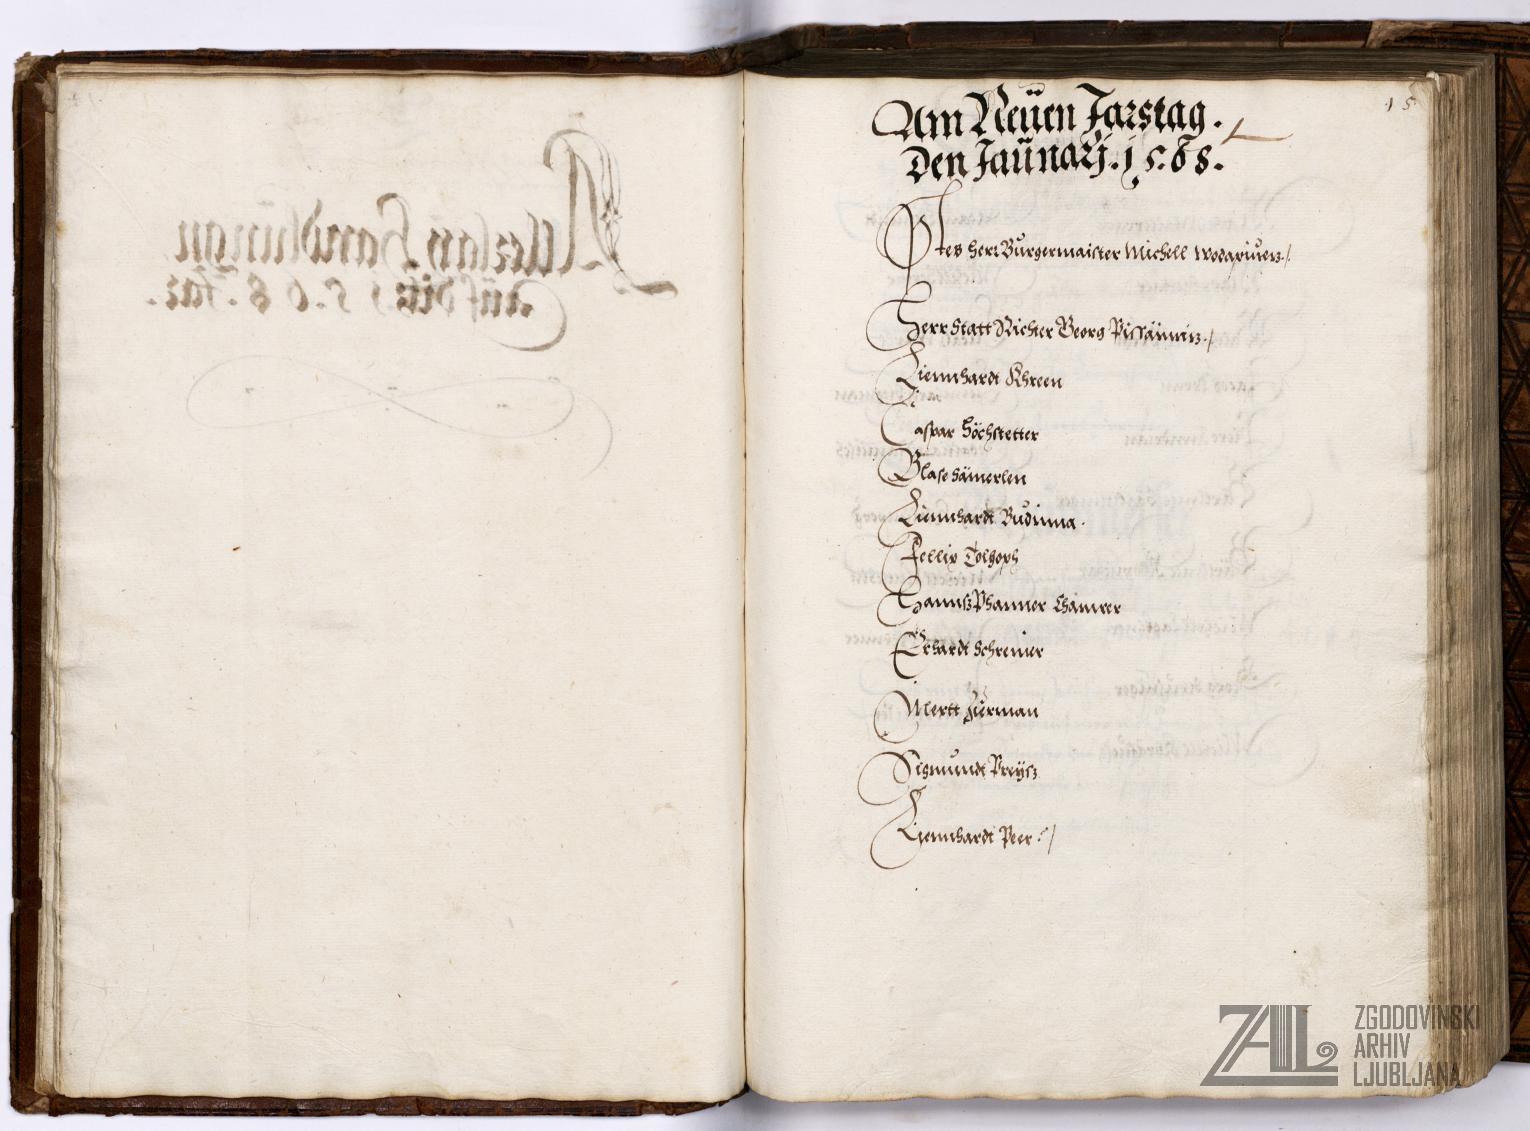 15
Am Neüen Jarstag.
Den Jaünarj. 1568.
herr Burgermaister Michell
Herr Statt Richter Georg
Liennhardt Khreen
Caspar Höchstetter
Blase Sämerlen
Liennhardt Budinna.
Fellix
Hannß Phanner Chamrer
Erhardt Schreiner
Mertt
Sigmundt Preÿß
Liennhardt Peer
ZAL
ZGODOVINSKI
ARHIV
LJUBLJANA